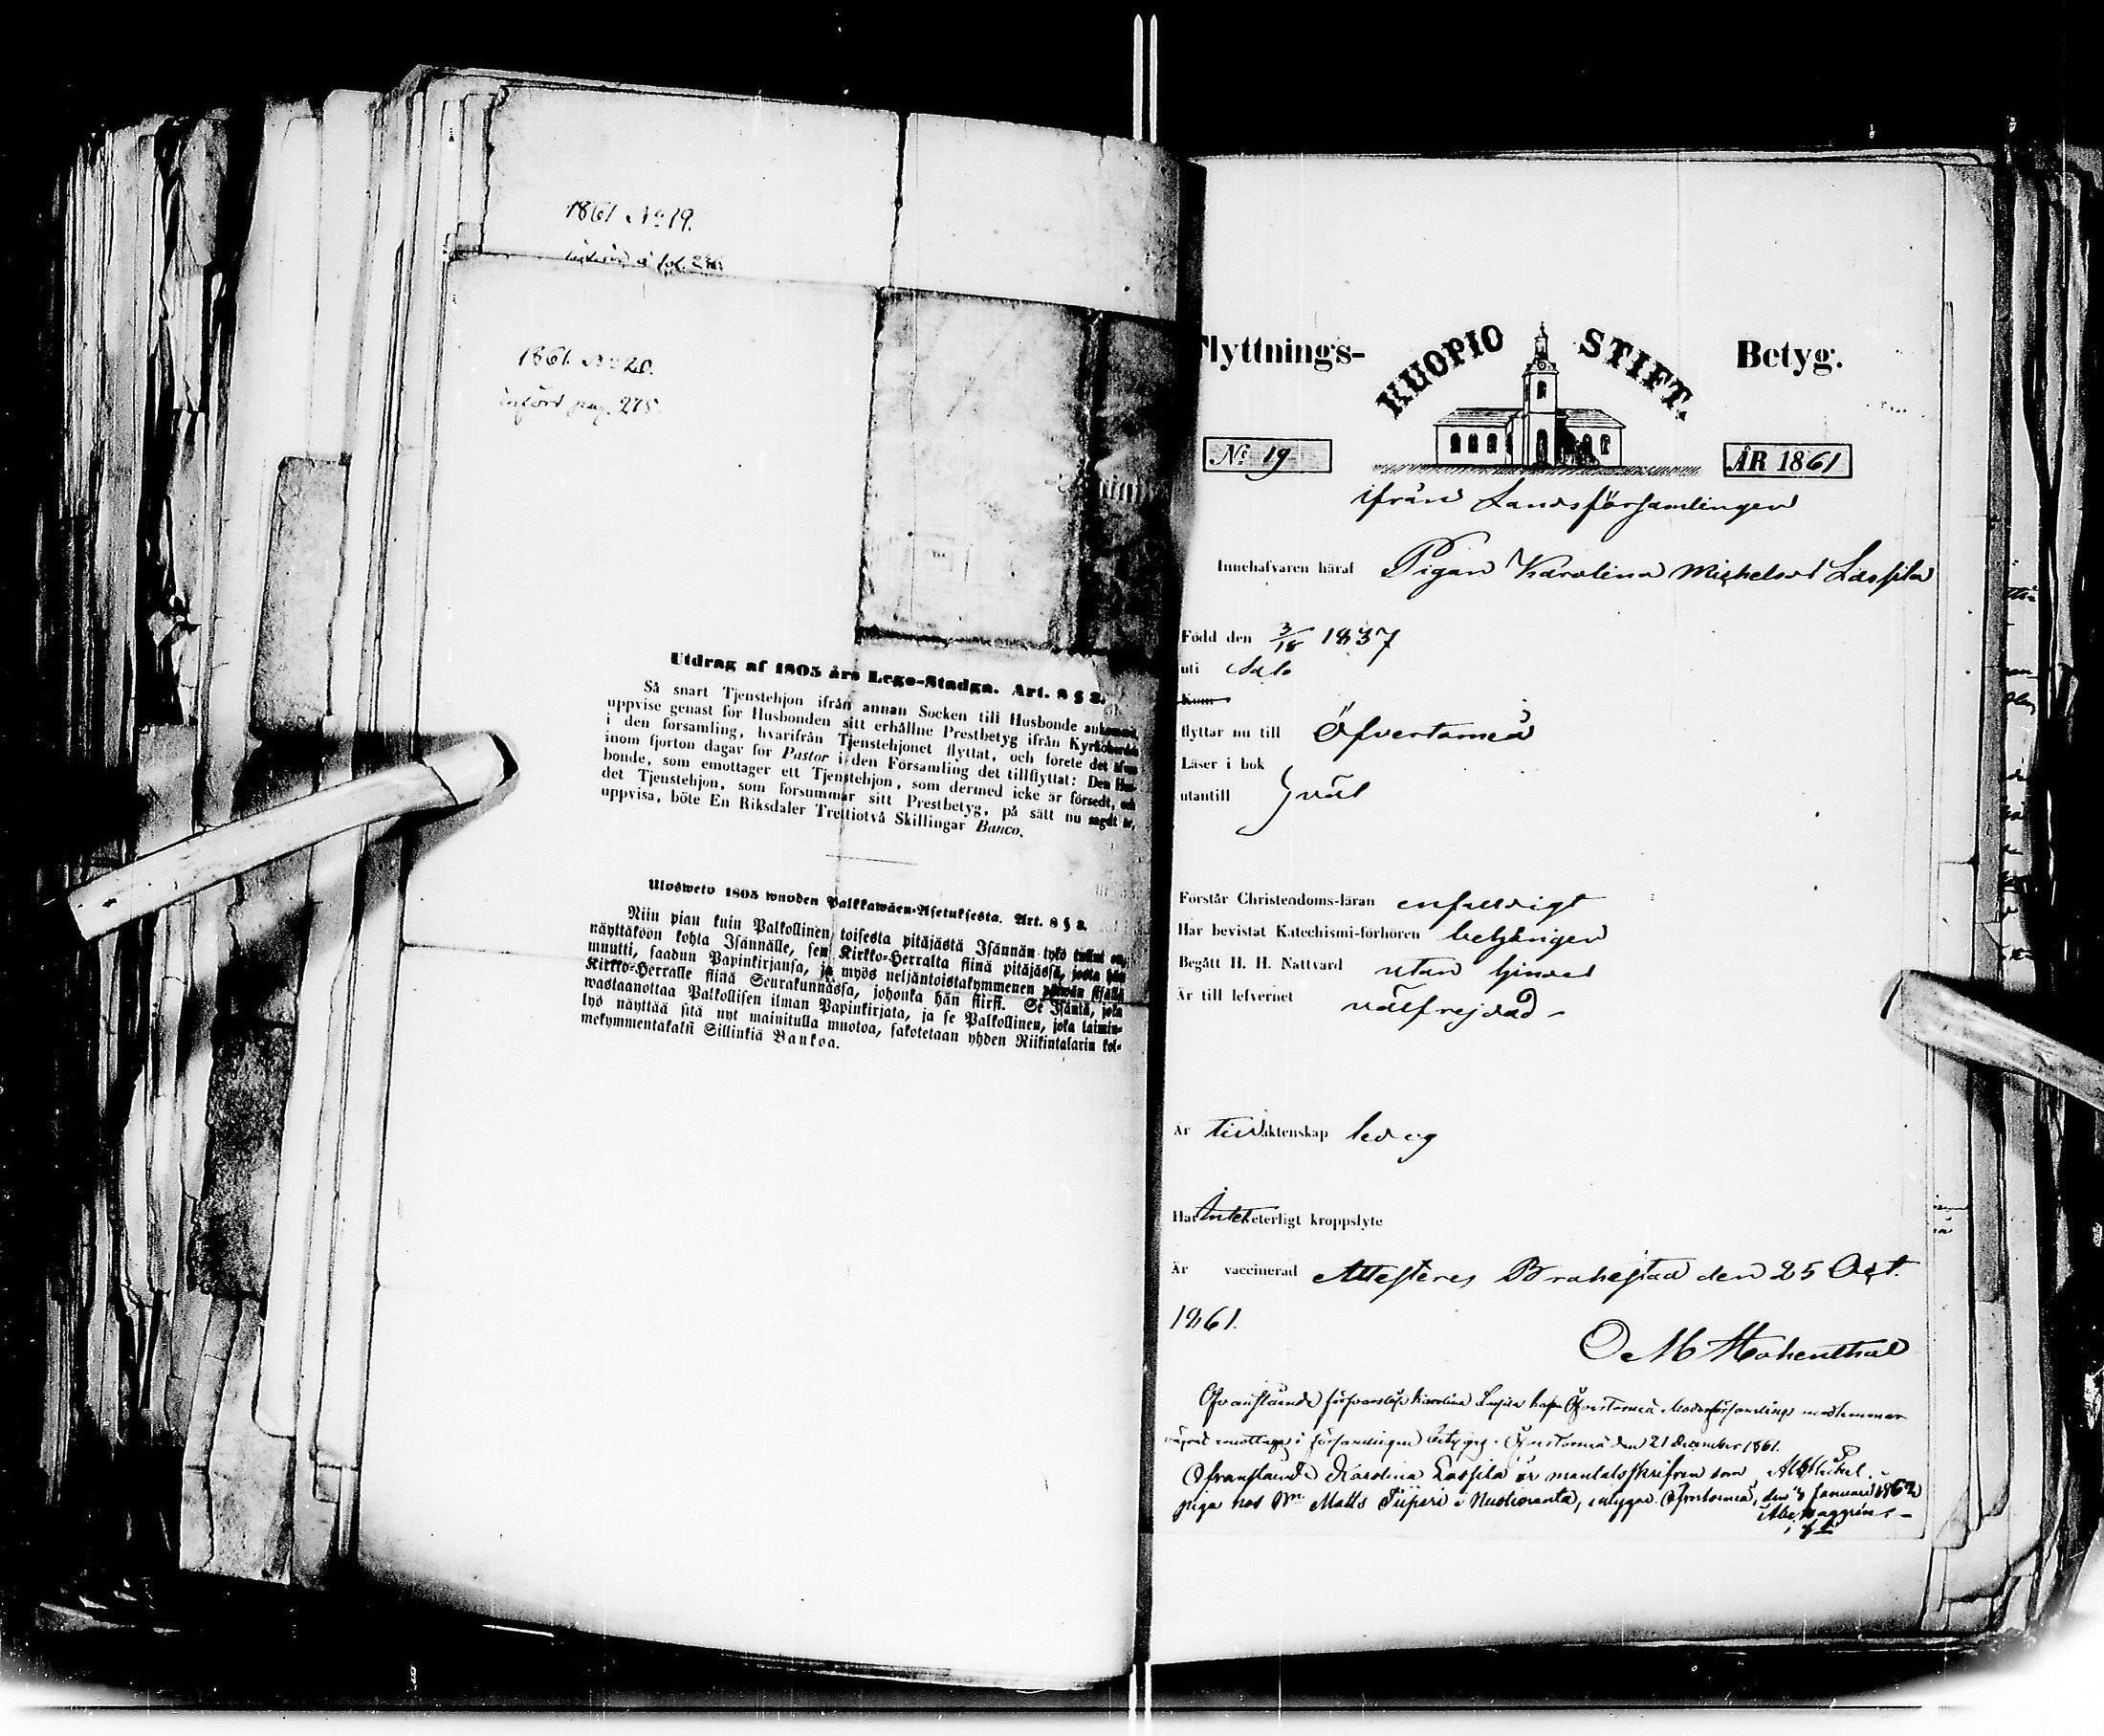 1861 No 19.
införd å fol.
1861. No 20.
införd pag. 275
Utdrag af 1805 års Lego-Stadga. Art. 8 § 2.
Så snart Tjenstehjon ifrån annan Socken till Husbonde ankommit,
uppvise genast för Husbonden sitt erhållne Prestbetyg ifrån Kyrkoherden
i den församling, hvarifrån Tjenstehjonet flyttat, och förete det äfven
inom fjorton dagar för Pastor i den Församling det tillflyttat: Den Hus-
bonde, som emottager ett Tjenstehjon, som dermed icke är försedt, och
det Tjenstehjon, som försummar sitt Prestbetyg, på sätt nu sagdt är,
uppvisa, böte En Riksdaler Trettiotvå Skillingar Banco.
Ulosweto 1805 wuoden Palkkawäen-Asetuksesta. Art. 8 § 2.
Niin pian kuin Palkollinen toisesta pitäjästä Isännän tykö tullut on,
näyttäköön kohta Isännälle, sen Kirkko-Herralta siinä pitäjässä, josta hän
muutti, saadun Papinkirjansa, ja myös neljäntoistakymmenen päiwän sisällä
Kirkko-Herralle siinä Seurakunnassa, johonka hän siirsi. Se Isäntä, joka
wastaanottaa Palkollisen ilman Papinkirjata, ja se Palkollinen, joka laimin-
lyö näyttää sitä nyt mainitulla muotoa, sakotetaan yhden Riikintalarin kol-
mekymmentäkaksi Sillinkiä Bankoa.
Flyttnings- KUOPIO STIFT. Betyg.
No 19 ÅR 1861
ifrån Landsförsamlingen
Innehafvaren häraf Pigan Karolina Michelsd Lassila
Född den 3/18 1837
uti Salo
Kom
flyttar nu till Öfvertorneå
Läser i bok
utantill } väl
Förstår Christendoms-läran enfaldigt
Har bevistat Katechismi-förhören behörigen
Begått H. H. Nattvard utan hinder
Är till lefvernet välfrejdad
Är till äktenskap ledig
Har Intet veterligt kroppslyte
Är vaccinerad Attesteres Brahestad den 25 Oct.
1861.
M Hohenthal
Ofvanstående Karolina Lassila Öfvertorneå Moderförsamling
i församlingen betygas. Öfvertorneå den 21 December 1861.
Ofvanstående Karolina Lassila är mantalsskrifven som
piga hos Matts Tiiperi i Nuotioranta, intygar. Öfvertorneå, den 3 Januari 1862